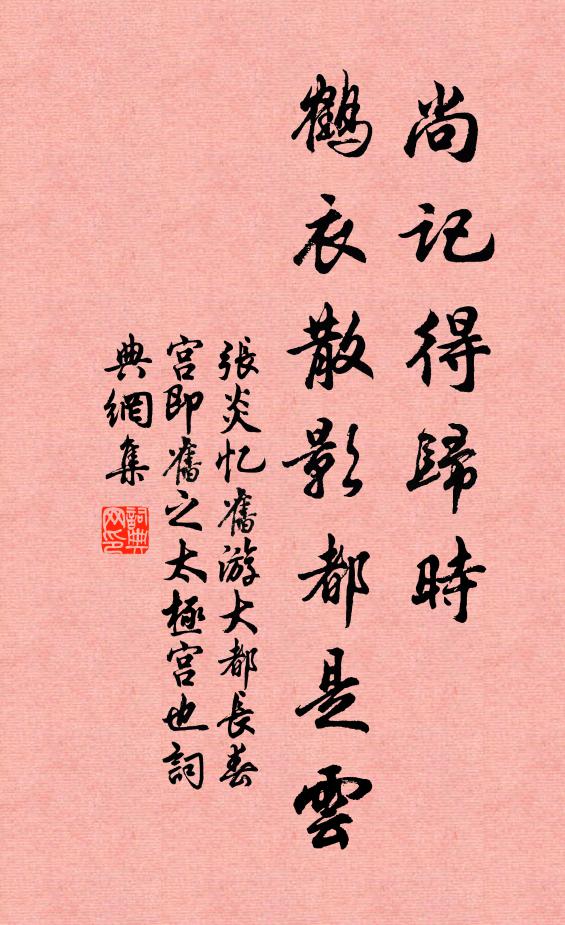 尚記得歸時
鶴衣散影都是雲
張炎忆舊游大都長春
宮即舊之太極宮也詞
典網集
詞典
网印